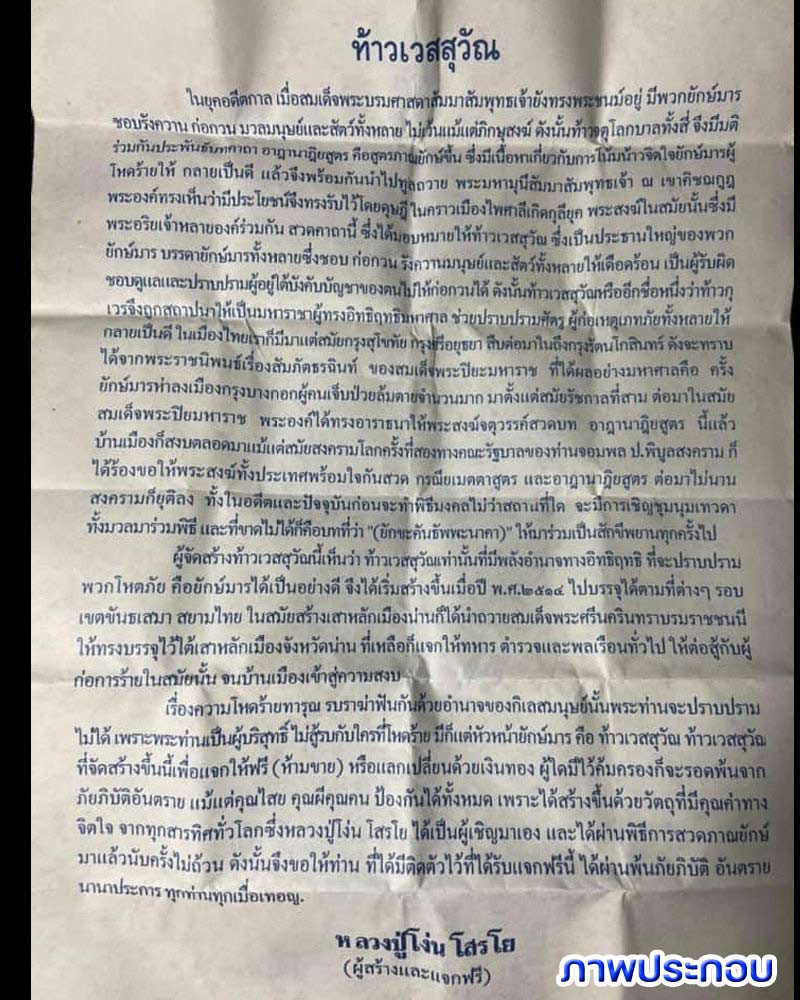 ท้าวเวสสุวัณ
ในยุคอดีตกาล เมื่อสมเด็จพระบรมศาสดาสัมมาสัมพุทธเจ้ายังทรงพระชนม์อยู่ มีพวกยักษ์มาร
ชอบรังควาน ก่อกวน มวลมนุษย์และสัตว์ทั้งหลาย ไม่เว้นแม้แต่ภิกษุสงฆ์ ดังนั้นท้าวจตุโลกบาลทั้งสี่ จึงมีมติ
ร่วมกันประพันธ์บทคาถา อาฏานาฏิยสูตร คือสูตรภาณยักษ์ขึ้น ซึ่งมีเนื้อหาเกี่ยวกับการโน้มน้าวจิตใจยักษ์มารผู้
โหดร้ายให้ กลายเป็นดี แล้วจึงพร้อมกันนำไปทูลถวาย พระมหามุนีสัมมาสัมพุทธเจ้า ณ เขาคิชฌกูฏ
พระองค์ทรงเห็นว่ามีประโยชน์จึงทรงรับไว้โดยดุษฎี ในคราวเมืองไพศาลีเกิดกุลียุค พระสงฆ์ในสมัยนั้นซึ่งมี
พระอริยเจ้าหลายองค์ร่วมกัน สวดคาถานี้ ซึ่งได้มอบหมายให้ท้าวเวสสุวัณ ซึ่งเป็นประธานใหญ่ของพวก
ยักษ์มาร บรรดายักษ์มารทั้งหลายซึ่งชอบ ก่อกวน รังควานมนุษย์และสัตว์ทั้งหลายให้เดือดร้อน เป็นผู้รับผิด
ชอบดูแลและปราบปรามผู้อยู่ใต้บังคับบัญชาของตนไม่ให้ก่อกวนได้ ดังนั้นท้าวเวสสุวัณหรืออีกชื่อหนึ่งว่าท้าวกุ
เวรจึงถูกสถาปนาให้เป็นมหาราชาผู้ทรงอิทธิฤทธิ์มหาศาล ช่วยปราบปรามศัตรู ผู้ก่อเหตุเภทภัยทั้งหลายให้
กลายเป็นดี ในเมืองไทยเราก็มีมาแต่สมัยกรุงสุโขทัย กรุงศรีอยุธยา สืบต่อมาในถึงกรุงรัตนโกสินทร์ ดังจะทราบ
ได้จากพระราชนิพนธ์เรื่องสัมภัตธรฉินท์ ของสมเด็จพระปิยะมหาราช ที่ได้ผลอย่างมหาศาลคือ ครั้ง
ยักษ์มารห่าลงเมืองกรุงบางกอกผู้คนเจ็บป่วยล้มตายจำนวนมาก มาตั้งแต่สมัยรัชกาลที่สาม ต่อมาในสมัย
สมเด็จพระปิยมหาราช พระองค์ได้ทรงอาราธนาให้พระสงฆ์จตุวรรค์สวดบท อาฏานาฏิยสูตร นี้แล้ว
บ้านเมืองก็สงบตลอดมาแม้แต่สมัยสงครามโลกครั้งที่สองทางคณะรัฐบาลของท่านจอมพล ป.พิบูลสงคราม ก็
ได้ร้องขอให้พระสงฆ์ทั้งประเทศพร้อมใจกันสวด กรณียเมตตาสูตร และอาฏานาฏิยสูตร ต่อมาไม่นาน
สงครามก็ยุติลง ทั้งในอดีตและปัจจุบันก่อนจะทำพิธีมงคลไม่ว่าสถานที่ใด จะมีการเชิญชุมนุมเทวดา
ทั้งมวลมาร่วมพิธี และที่ขาดไม่ได้ก็คือบทที่ว่า "(ยักขะคันธัพพะนาคา)" ให้มาร่วมเป็นสักขีพยานทุกครั้งไป
ผู้จัดสร้างท้าวเวสสุวัณนี้เห็นว่า ท้าวเวสสุวัณเท่านั้นที่มีพลังอำนาจทางอิทธิฤทธิ ที่จะปราบปราม
พวกโหตภัย คือยักษ์มารได้เป็นอย่างดี จึงได้เริ่มสร้างขึ้นเมื่อปี พ.ศ.๒๕๑๔ ไปบรรจุได้ตามที่ต่างๆ รอบ
เขตขันธเสมา สยามไทย ในสมัยสร้างเสาหลักเมืองน่านก็ได้นำถวายสมเด็จพระศรีนครินทราบรมราชชนนี
ให้ทรงบรรจุไว้ใต้เสาหลักเมืองจังหวัดน่าน ที่เหลือก็แจกให้ทหาร ตำรวจและพลเรือนทั่วไป ให้ต่อสู้กับผู้
ก่อการร้ายในสมัยนั้น จนบ้านเมืองเข้าสู่ความสงบ
เรื่องความโหดร้ายทารุณ รบราฆ่าฟันกันด้วยอำนาจของกิเลสมนุษย์นั้นพระท่านจะปราบปราม
ไม่ได้ เพราะพระท่านเป็นผู้บริสุทธิ์ ไม่สู้รบกับใครที่โหดร้าย มีก็แต่หัวหน้ายักษ์มาร คือ ท้าวเวสสุวัณ ท้าวเวสสุวัณ
ที่จัดสร้างขึ้นนี้เพื่อแจกให้ฟรี (ห้ามขาย) หรือแลกเปลี่ยนด้วยเงินทอง ผู้ใดมีไว้คุ้มครองก็จะรอดพ้นจาก
ภัยภิบัติอันตราย แม้แต่คุณไสย คุณผีคุณคน ป้องกันได้ทั้งหมด เพราะได้สร้างขึ้นด้วยวัตถุที่มีคุณค่าทาง
จิตใจ จากทุกสารทิศทั่วโลกซึ่งหลวงปู่โง่น โสรโย ได้เป็นผู้เชิญมาเอง และได้ผ่านพิธีการสวดภาณยักษ์
มาแล้วนับครั้งไม่ถ้วน ดังนั้นจึงขอให้ท่าน ที่ได้มีติดตัวไว้ที่ได้รับแจกฟรีนี้ ได้ผ่านพ้นภัยภิบัติ อันตราย
นานาประการ ทุกท่านทุกเมื่อเทอญ.
หลวงปู่โง่น โสรโย
(ผู้สร้างและแจกฟรี)
ภาพประกอบ